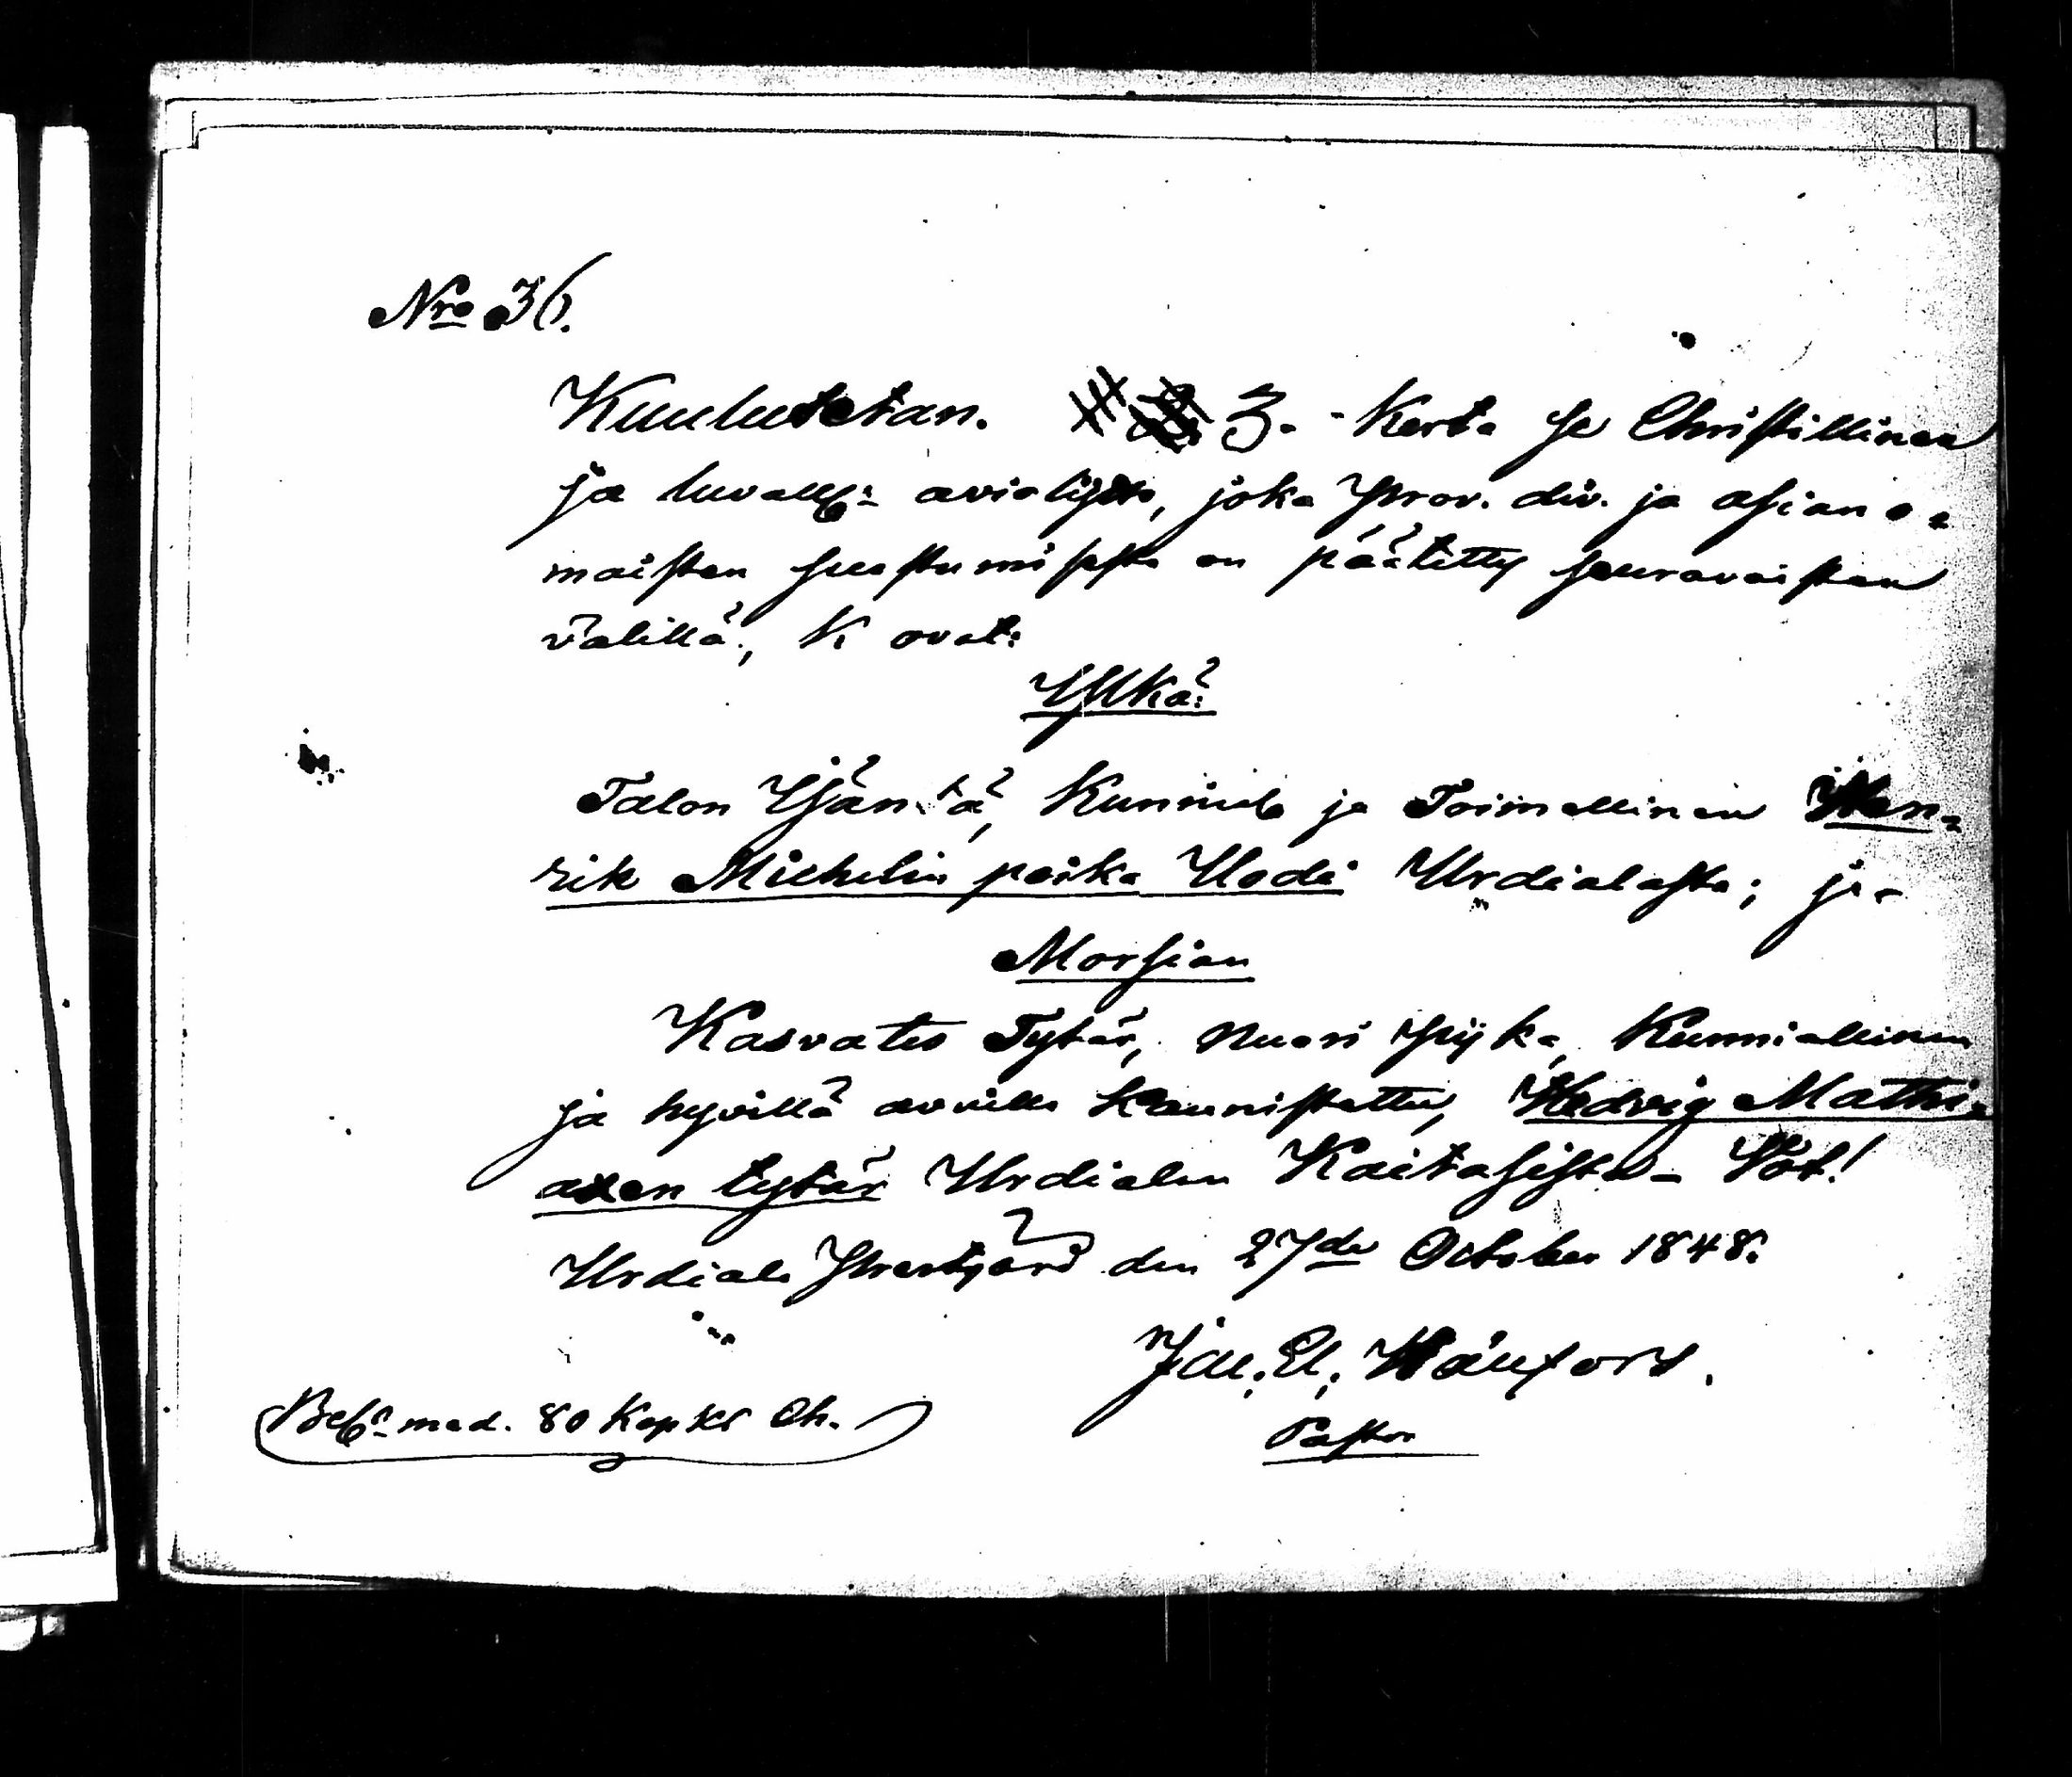 Nro 36.
Kuulutetan. 3. Kerta se Christillinen
ja luvall: avioliitto, joka Prov. div. ja asiano=
maisten suostumisesta on päätetty seuravaisten
välillä, K ovat:
Ylkä:
Talon Isäntä, Kunniall ja Toimellinen Hen=
rik Michelin poika Uodi Urdialasta; ja
Morsian
Kasvatus Tytär, nuori Piika, Kunniallinen
ja hyvillä avuilla kaunistettu, Hedvig Mathi=
axen tytär Urdialan Kaitasista
Urdiala Prestgård den 27de October 1848.
Pastor
med. 80 Kop